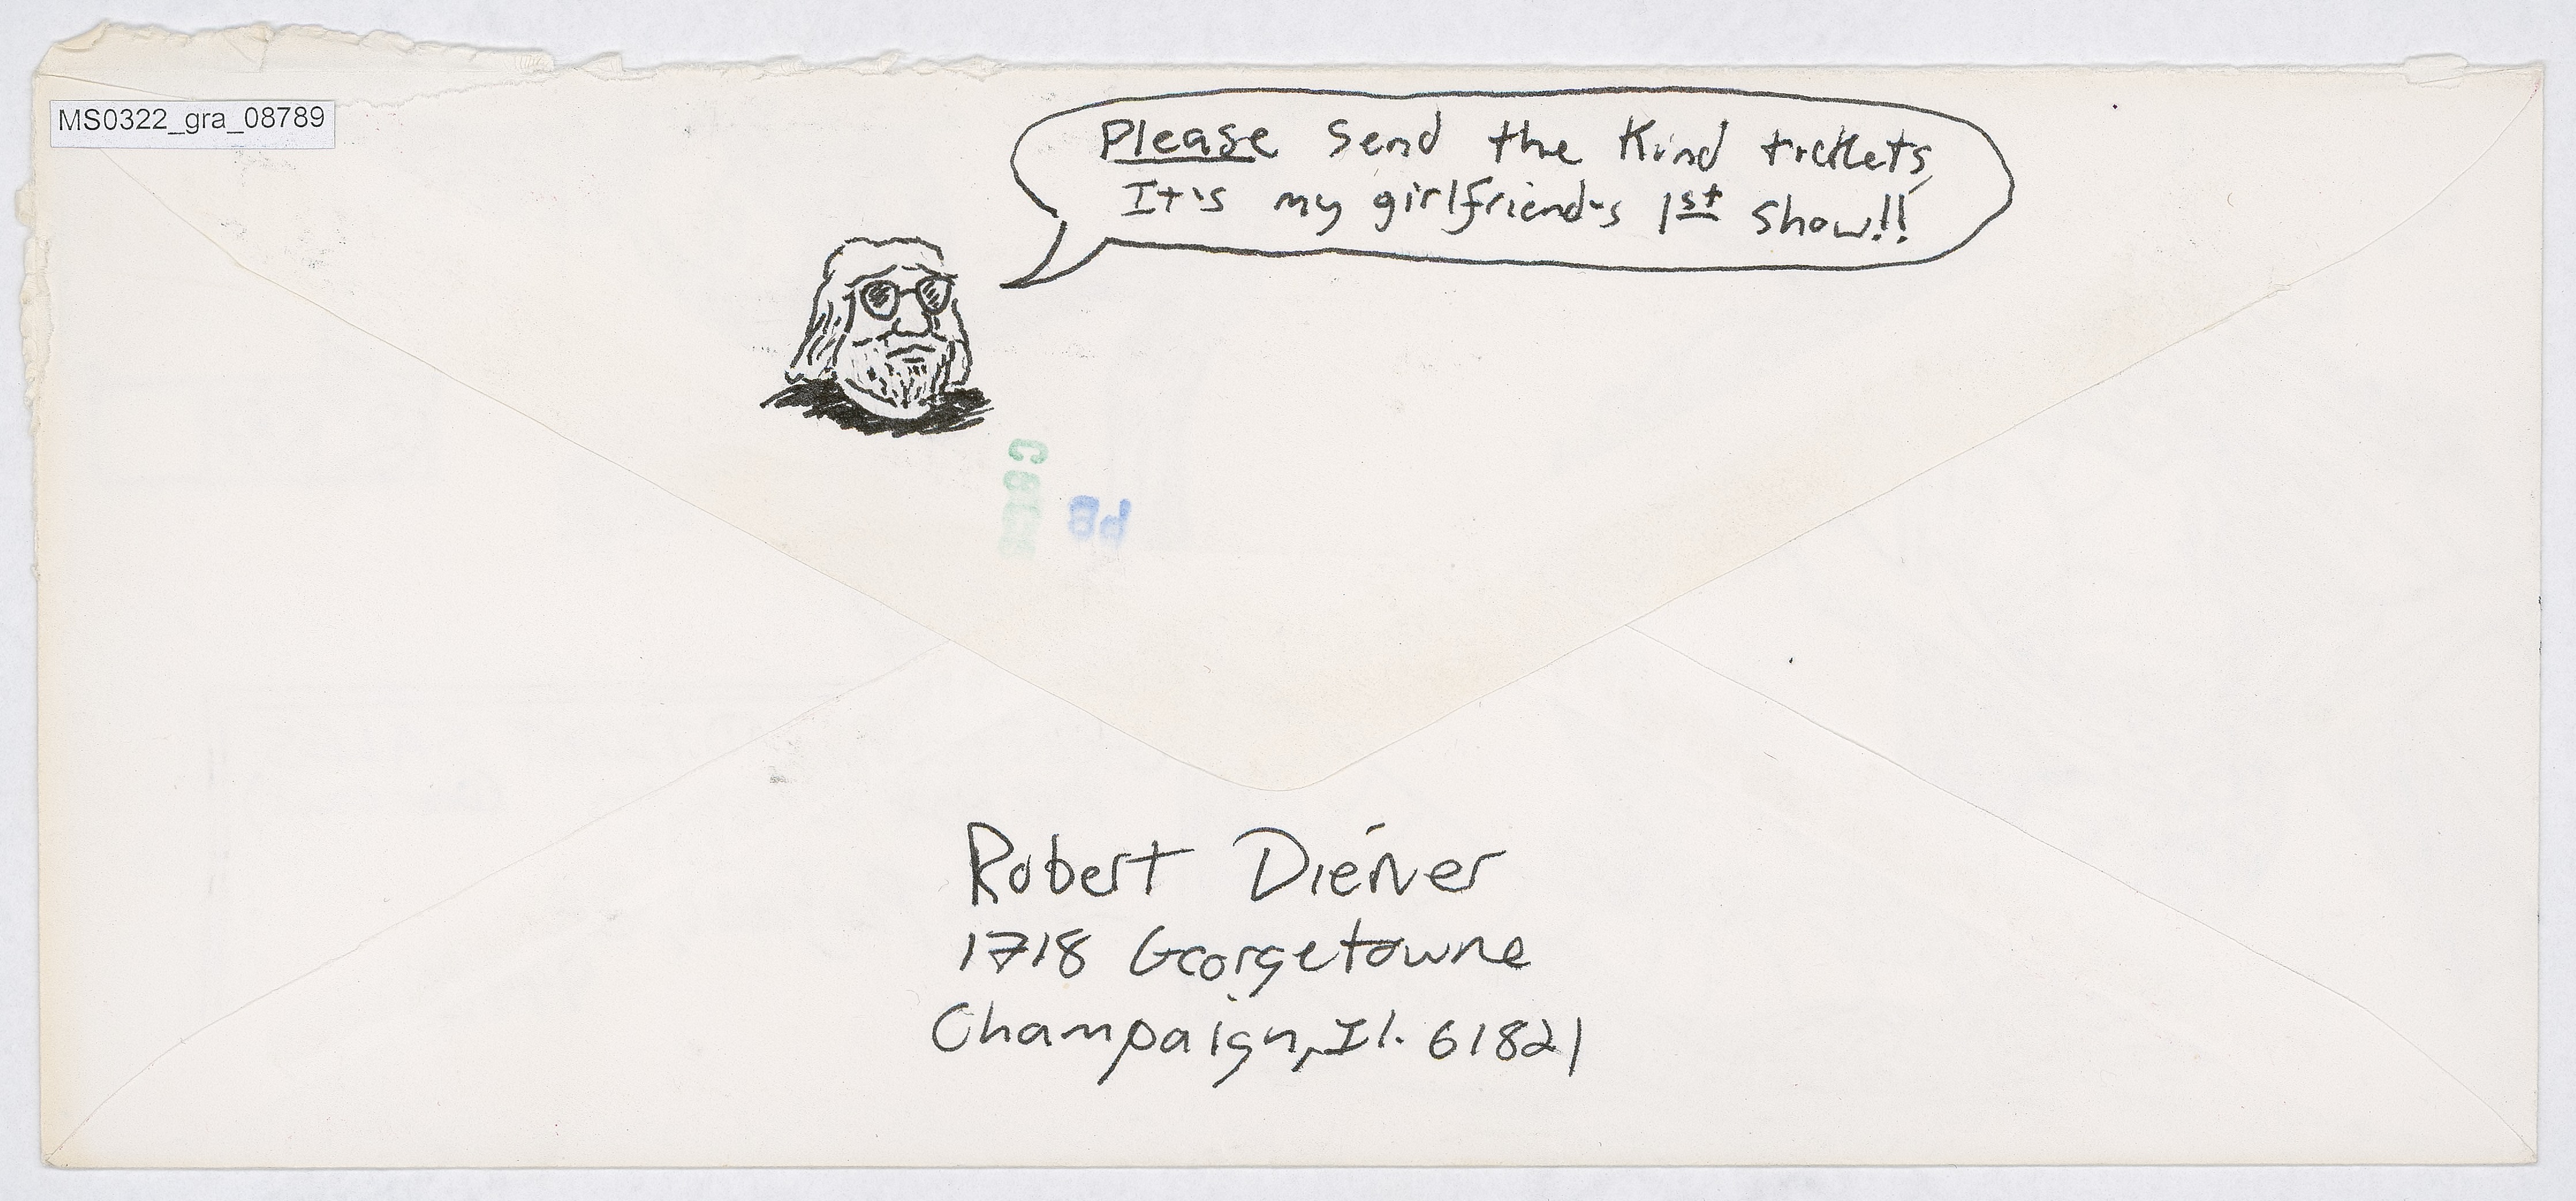 MS0322_gra_08789
Please send the Kind tickets,
It's my girlfriend's 1st show!!
Robert Diener
1718 Georgetowne
Champaign, Il. 61821